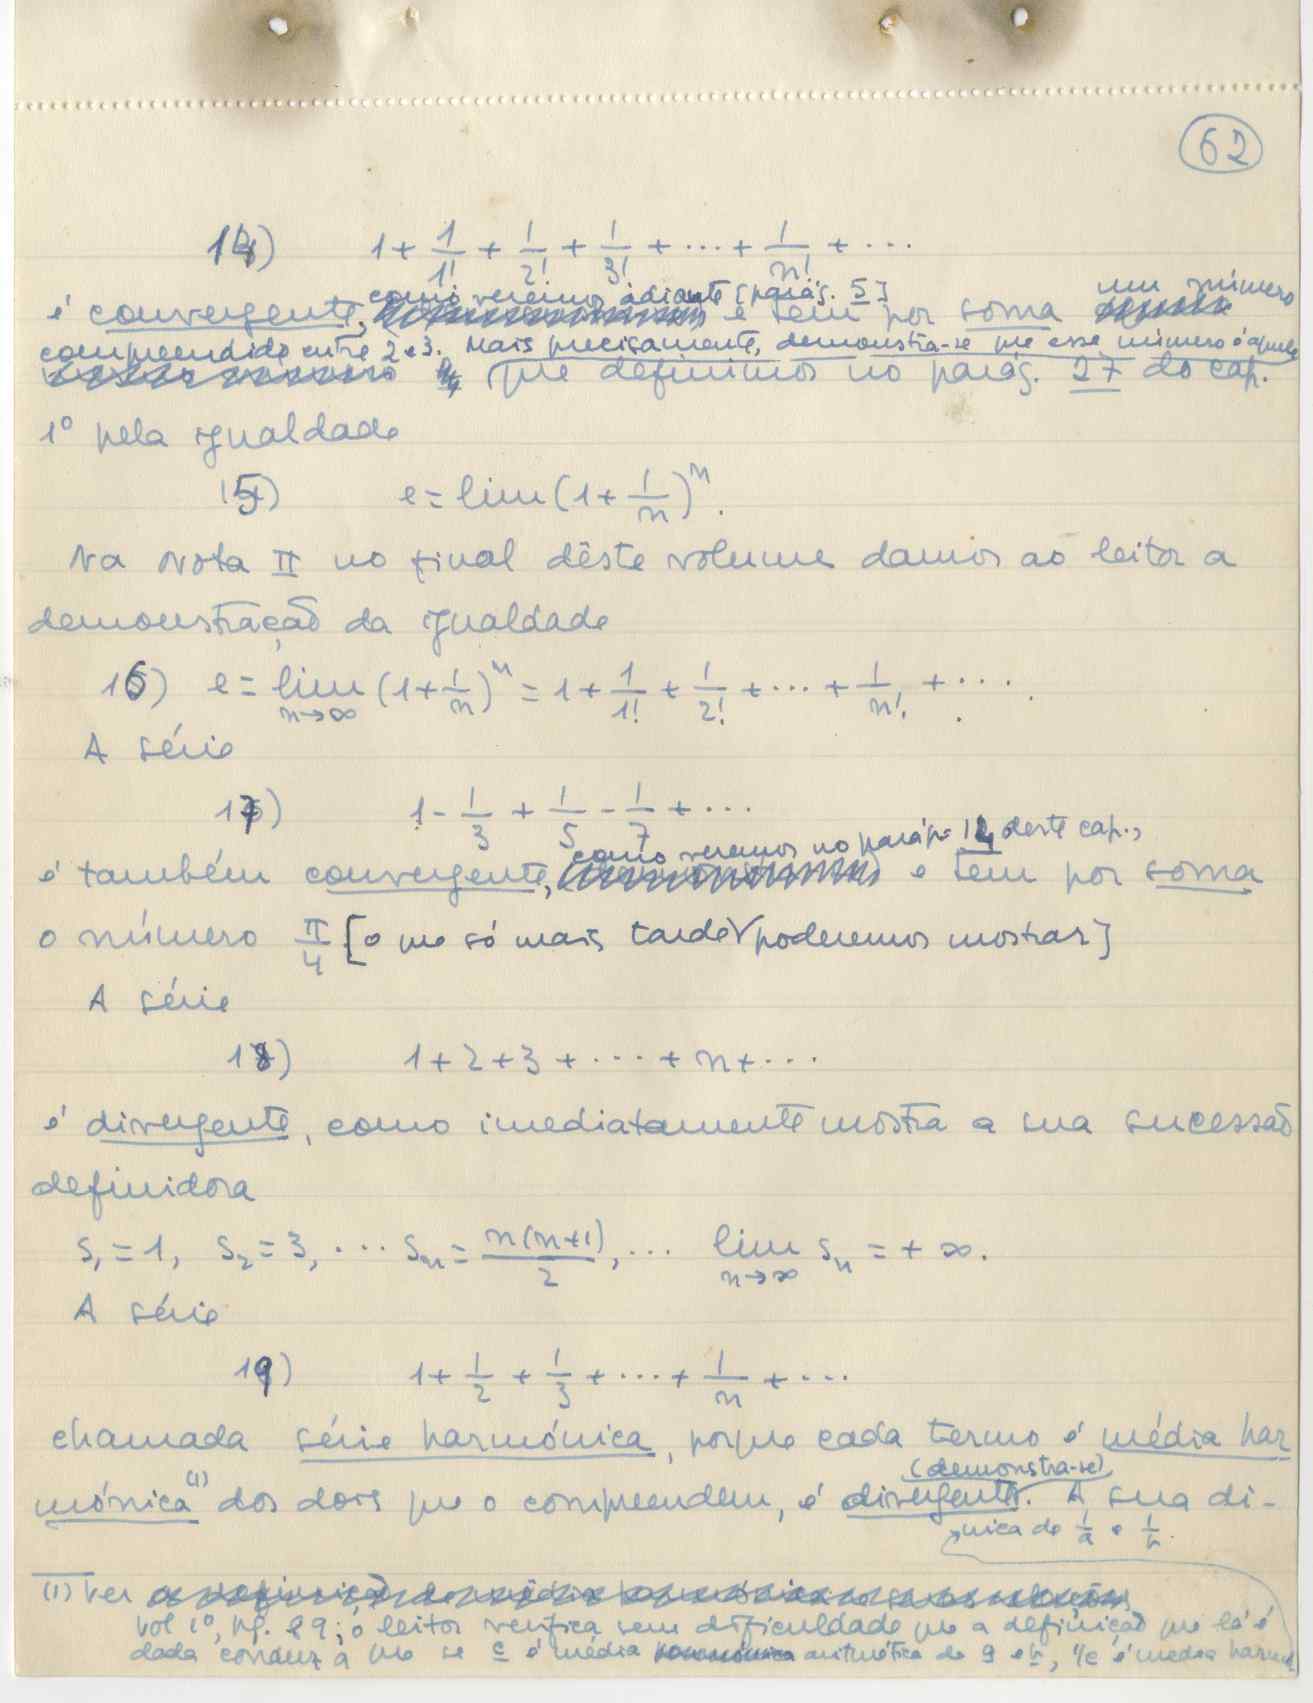 62
14) 1 + 1/1! + 1/2! + 1/3! + ··· + 1/n! + ···
como veremos adiante [parág. 5] um número
é convergente, e tem por soma
compreendido entre 2 e 3. Mais precisamente, demonstra-se que esse número é aquele
que definimos no parág. 27 do cap.
1º pela igualdade
15) e = lim (1 + 1/n)^n.
Na Nota II no final dêste volume damos ao leitor a
demonstração da igualdade
16) e = lim n→∞ (1 + 1/n)^n = 1 + 1/1! + 1/2! + ··· + 1/n! + ····
A série
17) 1 - 1/3 + 1/5 - 1/7 + ···
como veremos no parág. 14 deste cap.,
é também convergente, e tem por soma
o número π/4 [o que só mais tarde poderemos mostrar]
A série
18) 1 + 2 + 3 + ···· + n + ···
é divergente, como imediatamente mostra a sua sucessão
definidora
s₁ = 1, s₂ = 3, ··· sₙ = n(n+1)/2, ··· lim n→∞ sₙ = + ∞.
A série
19) 1 + 1/2 + 1/3 + ··· + 1/n + ···
chamada série harmónica, porque cada termo é média har
(demonstra-se)
mónica (1) dos dois que o compreendem, é divergente. A sua di-
nica de 1/a e 1/b.
(1) Ver
vol 1º, pg. 89; o leitor verifica sem dificuldade que a definição que lá é
dada conduz a que se c é média aritmética de a e b, 1/c é média harmó